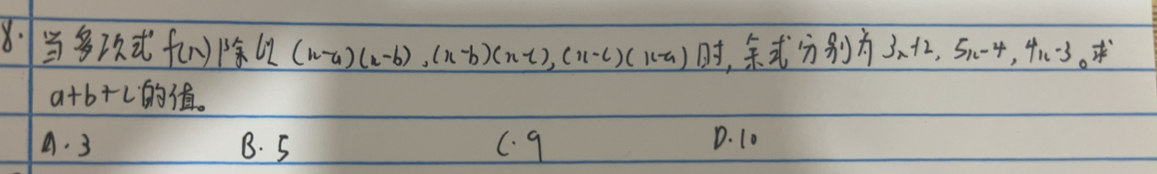 8. 当多项式 f(x) 除以 (x-a)(x-b), (x-b)(x-c), (x-c)(x-a) 时, 余式分别为 3x+2, 5x-4, 4x-3。求
a+b+c的值。
A. 3 B. 5 C. 9 D. 10